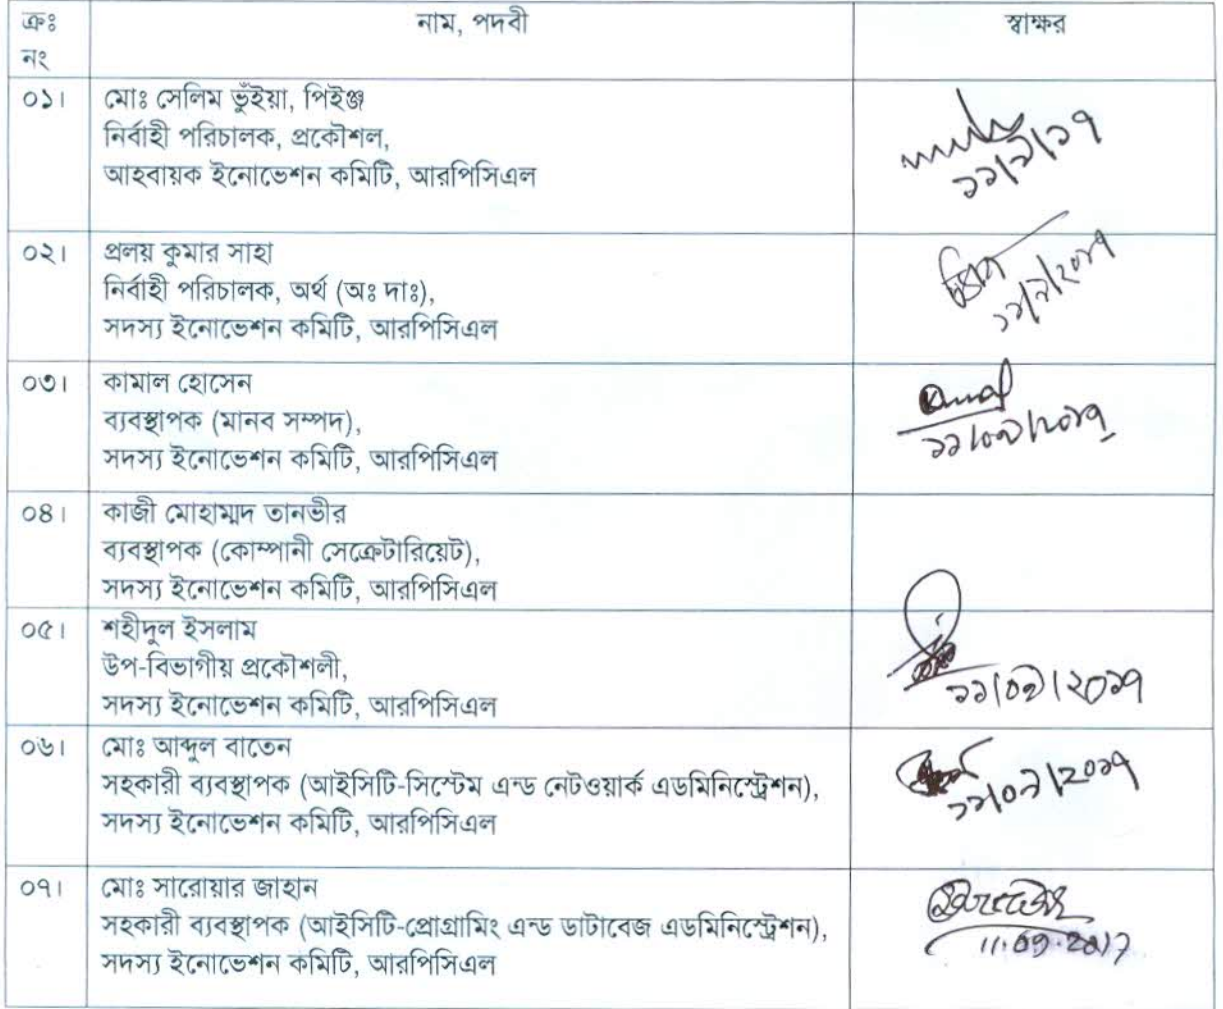 ক্রঃ নং নাম, পদবী স্বাক্ষর
০১। মোঃ সেলিম ভুঁইয়া, পিইঞ্জ
নির্বাহী পরিচালক, প্রকৌশল,
আহবায়ক ইনোভেশন কমিটি, আরপিসিএল
১১/৯/১৭
০২। প্রলয় কুমার সাহা
নির্বাহী পরিচালক, অর্থ (অঃ দাঃ),
সদস্য ইনোভেশন কমিটি, আরপিসিএল
১১/৯/২০১৭
০৩। কামাল হোসেন
ব্যবস্থাপক (মানব সম্পদ),
সদস্য ইনোভেশন কমিটি, আরপিসিএল
১১/০৯/২০১৭
০৪। কাজী মোহাম্মদ তানভীর
ব্যবস্থাপক (কোম্পানী সেক্রেটারিয়েট),
সদস্য ইনোভেশন কমিটি, আরপিসিএল
০৫। শহীদুল ইসলাম
উপ-বিভাগীয় প্রকৌশলী,
সদস্য ইনোভেশন কমিটি, আরপিসিএল
১১/০৯/২০১৭
০৬। মোঃ আব্দুল বাতেন
সহকারী ব্যবস্থাপক (আইসিটি-সিস্টেম এন্ড নেটওয়ার্ক এডমিনিস্ট্রেশন),
সদস্য ইনোভেশন কমিটি, আরপিসিএল
১১/০৯/২০১৭
০৭। মোঃ সারোয়ার জাহান
সহকারী ব্যবস্থাপক (আইসিটি-প্রোগ্রামিং এন্ড ডাটাবেজ এডমিনিস্ট্রেশন),
সদস্য ইনোভেশন কমিটি, আরপিসিএল
11.09.2017